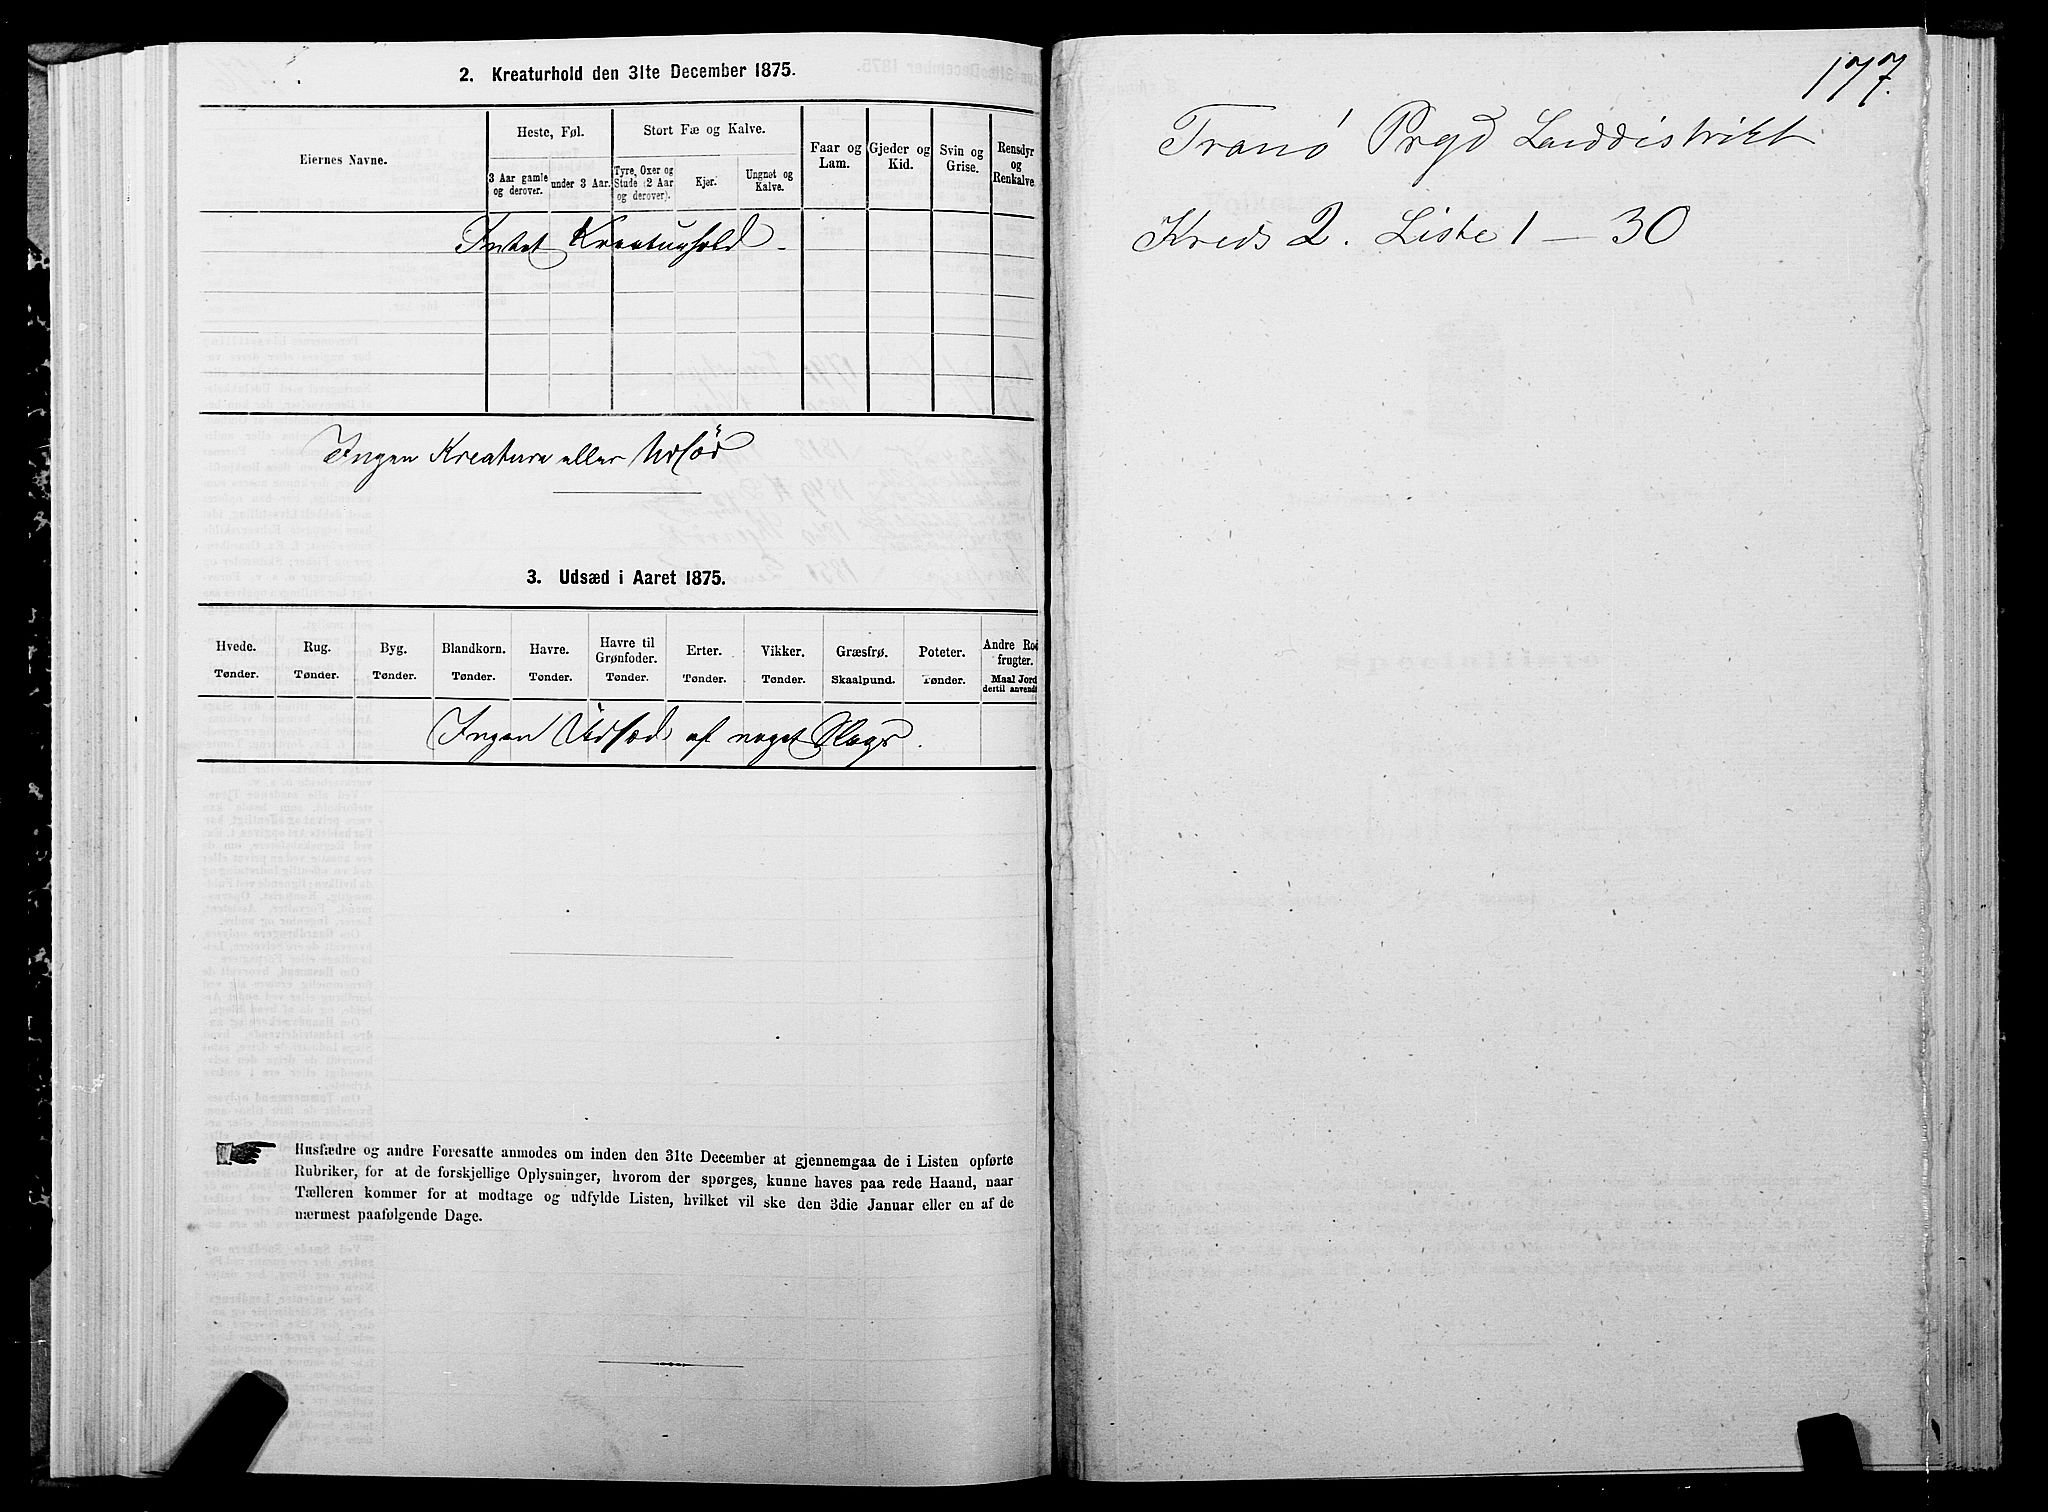 2. Kreaturhold den 31te December 1875.
Eiernes Navne.
Heste, Føl.
Stort Fæ og Kalve.
Faar og Lam.
Gjeder og Kid.
Svin og Grise.
Rensdyr og Renkalve.
3 Aar gamle og derover.
under 3 Aar.
Tyre, Oxer og Stude (2 Aar og derover).
Kjør.
Ungnøt og Kalve.
Intet Kreaturhold.
Ingen Kreature eller Udsæd
3. Udsæd i Aaret 1875.
Hvede.
Rug.
Byg.
Blandkorn.
Havre.
Havre til Grønfoder.
Erter.
Vikker.
Græsfrø.
Poteter.
Andre Rod
frugter.
Tønder.
Tønder.
Tønder.
Tønder.
Tønder.
Tønder.
Tønder.
Tønder.
Skaalpund.
Tønder.
Maal Jord
dertil anvendt
Ingen Udsæd af noget Slags.
Husfædre og andre Foresatte anmodes om inden den 31te December at gjennemgaa de i Listen opførte
Rubriker, for at de forskjellige Oplysninger, hvorom der spørges, kunne haves paa rede Haand, naar
Tælleren kommer for at modtage og udfylde Listen, hvilket vil ske den 3die Januar eller en af de
nærmest paafølgende Dage.
177.
Tranö Prgd Landdistrikt
Kreds 2. Liste 1 – 30